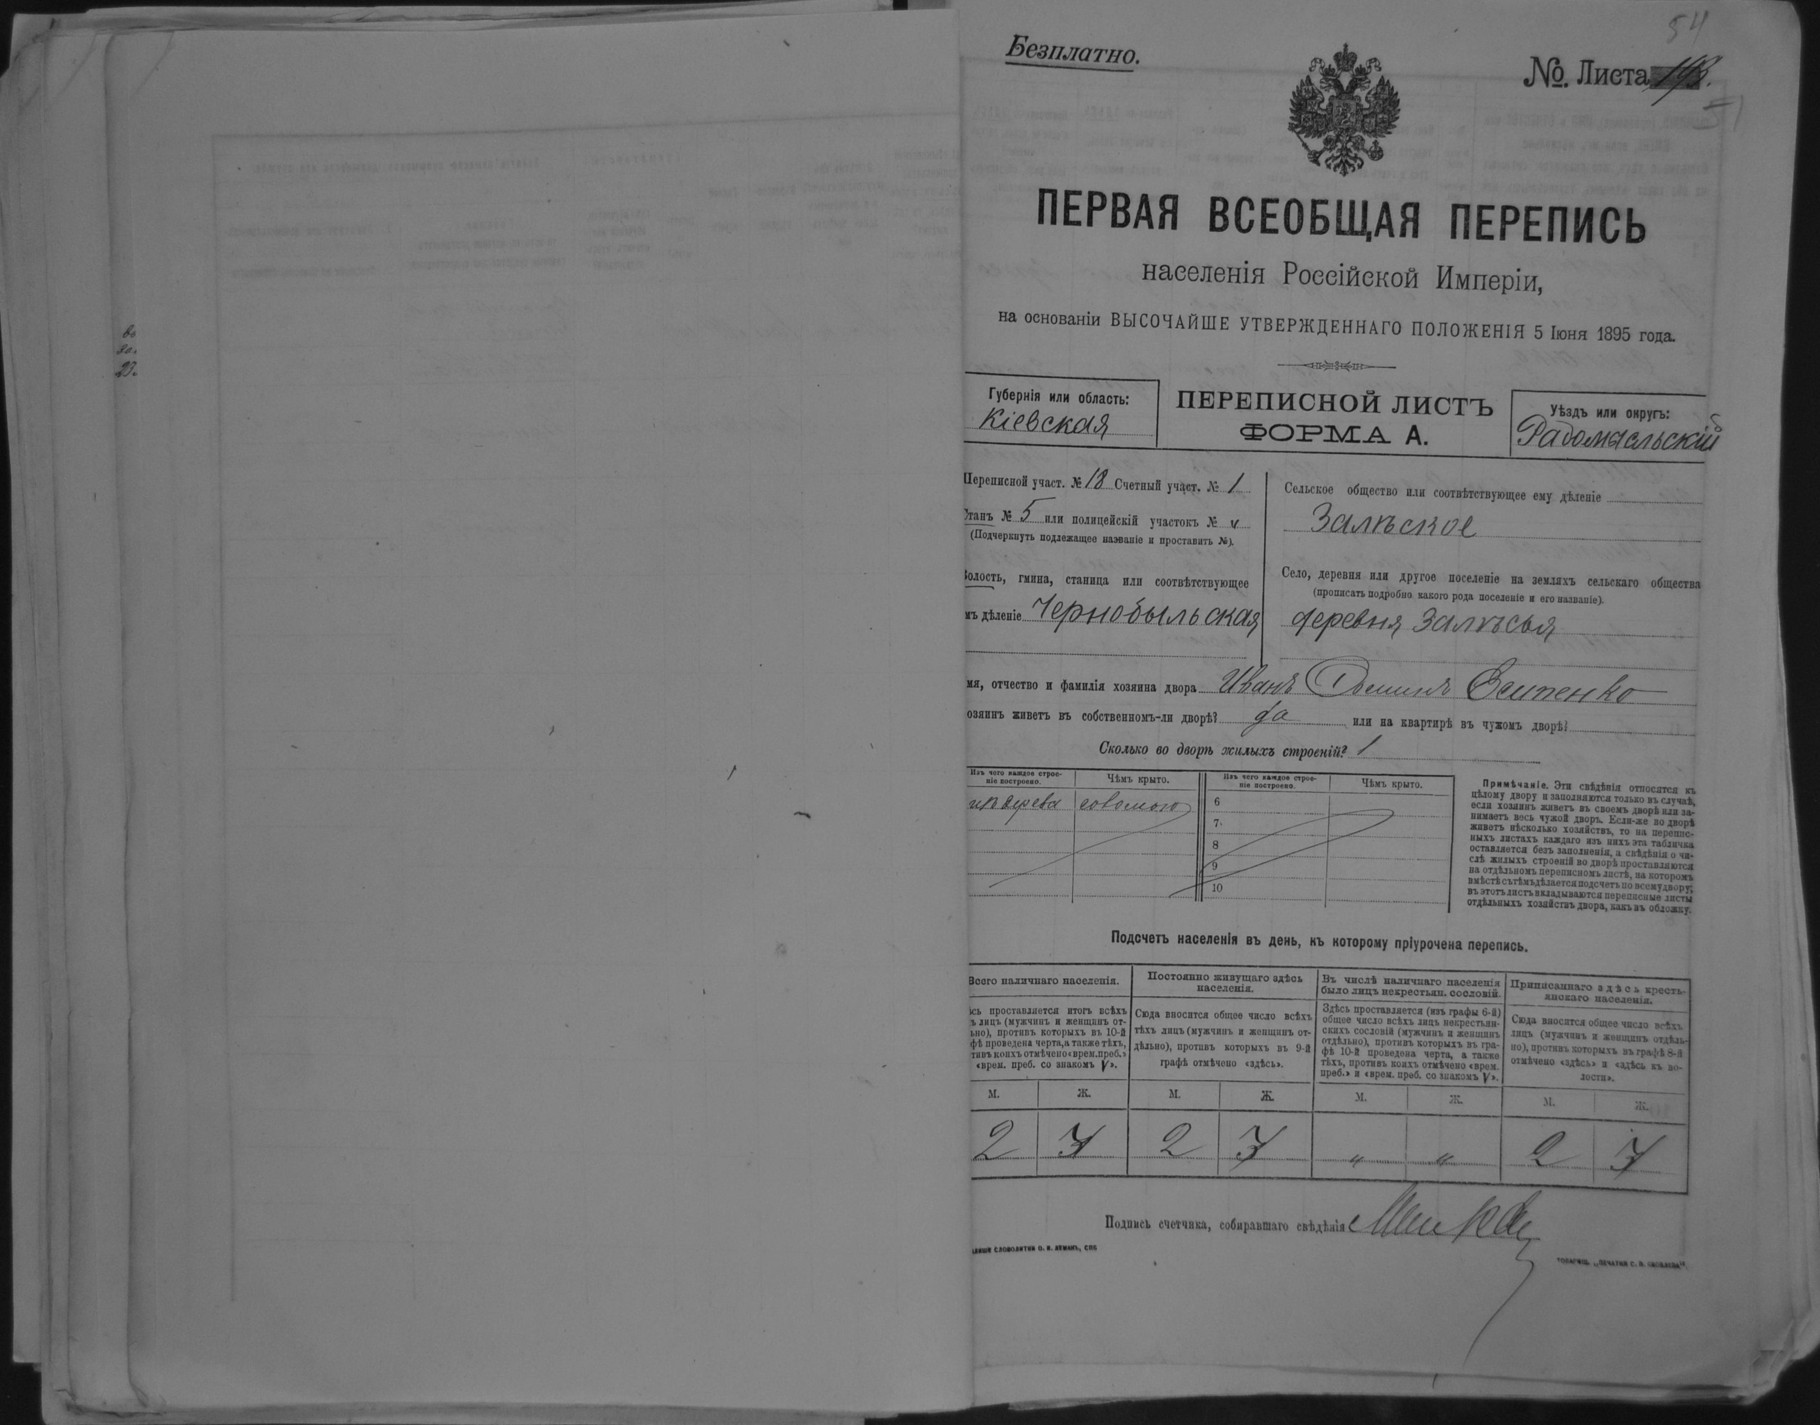 54
Безплатно.
№. Листа
51
ПЕРВАЯ ВСЕОБЩАЯ ПЕРЕПИСЬ
населенія Россійской Имперіи,
на основаніи ВЫСОЧАЙШЕ УТВЕРЖДЕННАГО ПОЛОЖЕНІЯ 5 Іюня 1895 года.
Губернія или область:
Кіевская
ПЕРЕПИСНОЙ ЛИСТЪ
ФОРМА А.
Уѣздъ или округъ:
Радомысльскій
Переписной участ. № 18 Счетный участ. № 1
Станъ № 5 или полицейскій участокъ № v
(Подчеркнуть подлежащее названіе и проставить №).
Волость, гмина, станица или соотвѣтствующее
мъ дѣленіе Чернобыльская
Сельское общество или соотвѣтствующее ему дѣленіе
Залѣское
Село, деревня или другое поселеніе на земляхъ сельскаго общества
(прописать подробно какого рода поселеніе и его названіе).
деревня Залѣсья
мя, отчество и фамилія хозяина двора Иванъ
озяинъ живетъ въ собственномъ-ли дворѣ? да или на квартирѣ въ чужомъ дворѣ?
Сколько во дворѣ жилыхъ строеній? 1
Изъ чего каждое строе-
ніе построено.
Чѣмъ крыто.
Изъ чего каждое строе-
ніе построено.
Чѣмъ крыто.
изъ дерева соломою
6
7
8
9
10
Примѣчаніе. Эти свѣдѣнія относятся къ
цѣлому двору и заполняются только въ случаѣ,
если хозяинъ живетъ въ своемъ дворѣ или за-
нимаетъ весь чужой дворъ. Если-же во дворѣ
живетъ нѣсколько хозяйствъ, то на перепис-
ныхъ листахъ каждаго изъ нихъ эта табличка
оставляется безъ заполненія, а свѣдѣнія о чи-
слѣ жилыхъ строеній во дворѣ проставляются
на отдѣльномъ переписномъ листѣ, на которомъ
вмѣстѣ съ тѣмъ дѣлается подсчетъ по всему двору;
въ этотъ листъ вкладываются переписные листы
отдѣльныхъ хозяйствъ двора, какъ въ обложку.
Подсчетъ населенія въ день, къ которому пріурочена перепись.
Всего наличнаго населенія.
сь проставляется итогъ всѣхъ
ъ лицъ (мужчинъ и женщинъ от-
ьно), противъ которыхъ въ 10-й
фѣ проведена черта, а также тѣхъ,
тивъ коихъ отмѣчено «врем. преб.»
«врем. преб. со знакомъ V».
Постоянно живущаго здѣсь
населенія.
Сюда вносится общее число всѣхъ
тѣхъ лицъ (мужчинъ и женщинъ от-
дѣльно), противъ которыхъ въ 9-й
графѣ отмѣчено «здѣсь».
Въ числѣ наличнаго населенія
было лицъ некрестьян. сословій.
Здѣсь проставляется (изъ графы 6-й)
общее число всѣхъ лицъ некрестьян-
скихъ сословій (мужчинъ и женщинъ
отдѣльно), противъ которыхъ въ гра-
фѣ 10-й проведена черта, а также
тѣхъ, противъ коихъ отмѣчено «врем.
преб.» и «врем. преб. со знакомъ V».
Приписаннаго здѣсь кресть-
янскаго населенія.
Сюда вносится общее число всѣхъ
лицъ (мужчинъ и женщинъ отдѣль-
но), противъ которыхъ въ графѣ 8-й
отмѣчено «здѣсь» и «здѣсь къ во-
лости».
М. Ж. М. Ж. М. Ж. М. Ж.
2 7 2 7 „ „ 2 7
Подпись счетчика, собиравшаго свѣдѣнія
СЛОВОЛИТНИ О. И. ЛЕМАНЪ, СПБ
ТОВАРИЩ. „ПЕЧАТНЯ С. П. ЯКОВЛЕВА“.